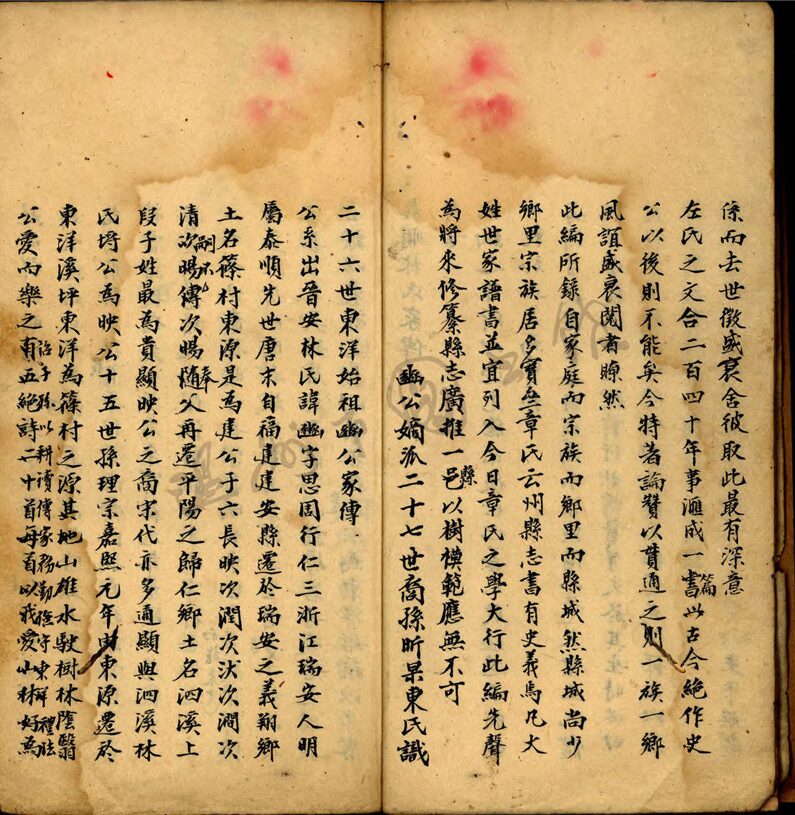 係而去世徵盛衰舍彼取此最有深意
左氏之文合二百四十年事滙成一書篇以古今絕作史
公以後則不能矣今特著論贊以貫通之則一族一鄉
風誼盛衰閱者瞭然
此編所錄自家庭而宗族而鄉里而縣城然縣城尚少
鄉里宗族居多實無章氏云州縣志書有史義焉凡大
姓世家譜書並宜列入今日章氏之學大行此編先聲
為將來修纂縣志廣推一邑縣以樹模範應無不可
幽公嫡派二十七世裔孫昕杲東氏識
二十六世東洋始祖幽公家傳
公系出晉安林氏諱幽字思周行仁三浙江瑞安人明
屬泰順先世唐末自福建建安縣遷於瑞安之義翔鄉
土名篠村東源是為建公子六長映次潤次洑次澗次
清次暘傳次暘隨父再遷平陽之歸仁鄉土名泗溪上
段子姓最為貴顯映公之裔宋代亦多通顯與泗溪林
民埒公為映公十五世孫理宗嘉熙元年由東源遷於
東洋溪坪東洋為篠村之源其地山雄水駛樹林蔭翳
公愛而樂之有五絕詩二十首每首以我愛山林好為
詒子孫以耕讀傳家務勤儉守